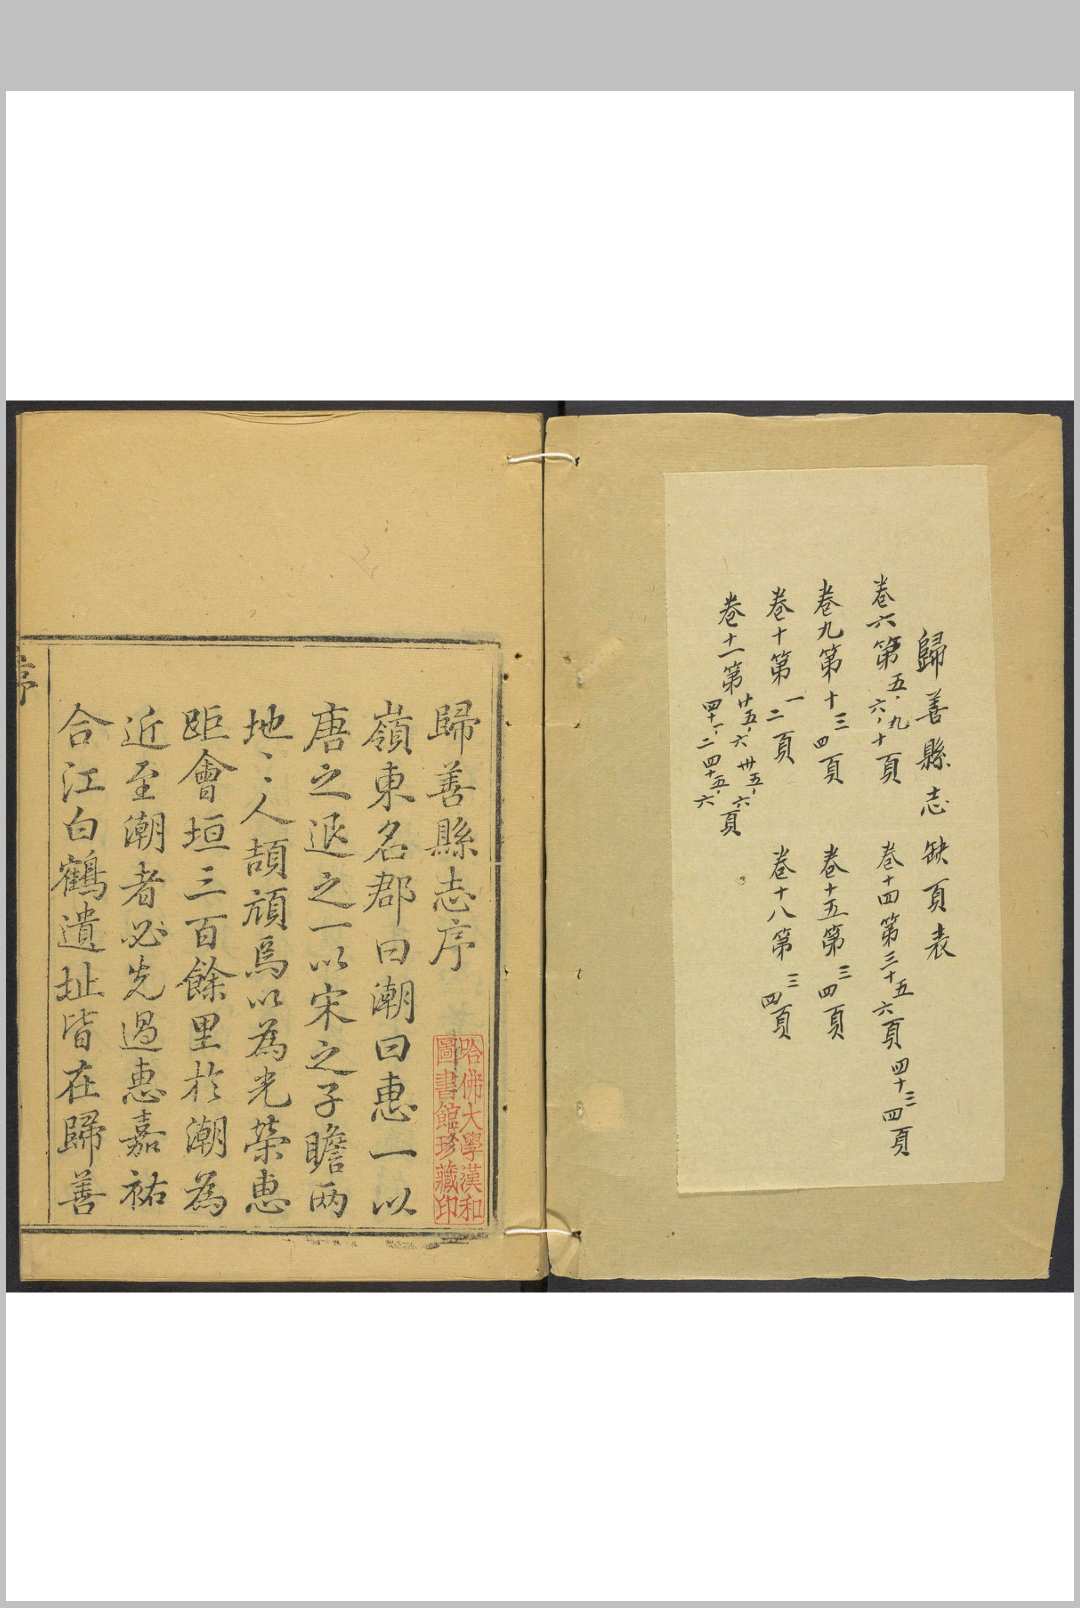 歸善縣志缺頁表
卷六第五、六、九、十頁
卷十四第三十五六頁四十三四頁
卷九第十三四頁
卷十五第三四頁
卷十第一二頁
卷十八第三四頁
卷十一第廿五、六卅五、六
四十一、二四十五、六頁
歸善縣志序
嶺東名郡曰潮曰惠一以
唐之退之一以宋之子瞻两
地〻人頡頏焉以為光榮惠
距會垣三百餘里於潮為
近至潮者必先過惠嘉祐
合江白鶴遺址皆在歸善
序
哈佛大學漢和
圖書館珍藏印